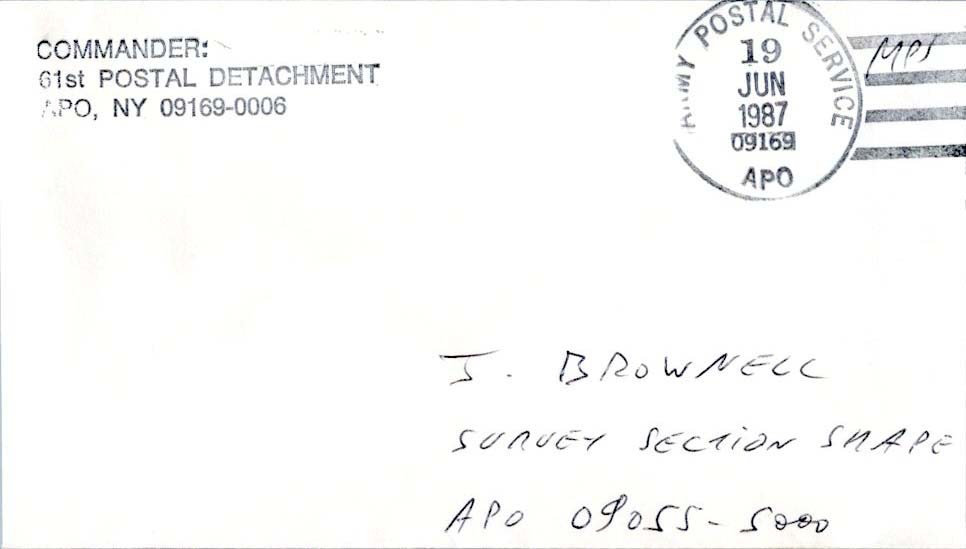 COMMANDER:
61st POSTAL DETACHMENT
APO, NY 09169-0006
ARMY POSTAL SERVICE
19
JUN
1987
09169
APO
MPS
J. BROWNELL
SURVEY SECTION SHAPE
APO 09055-5000